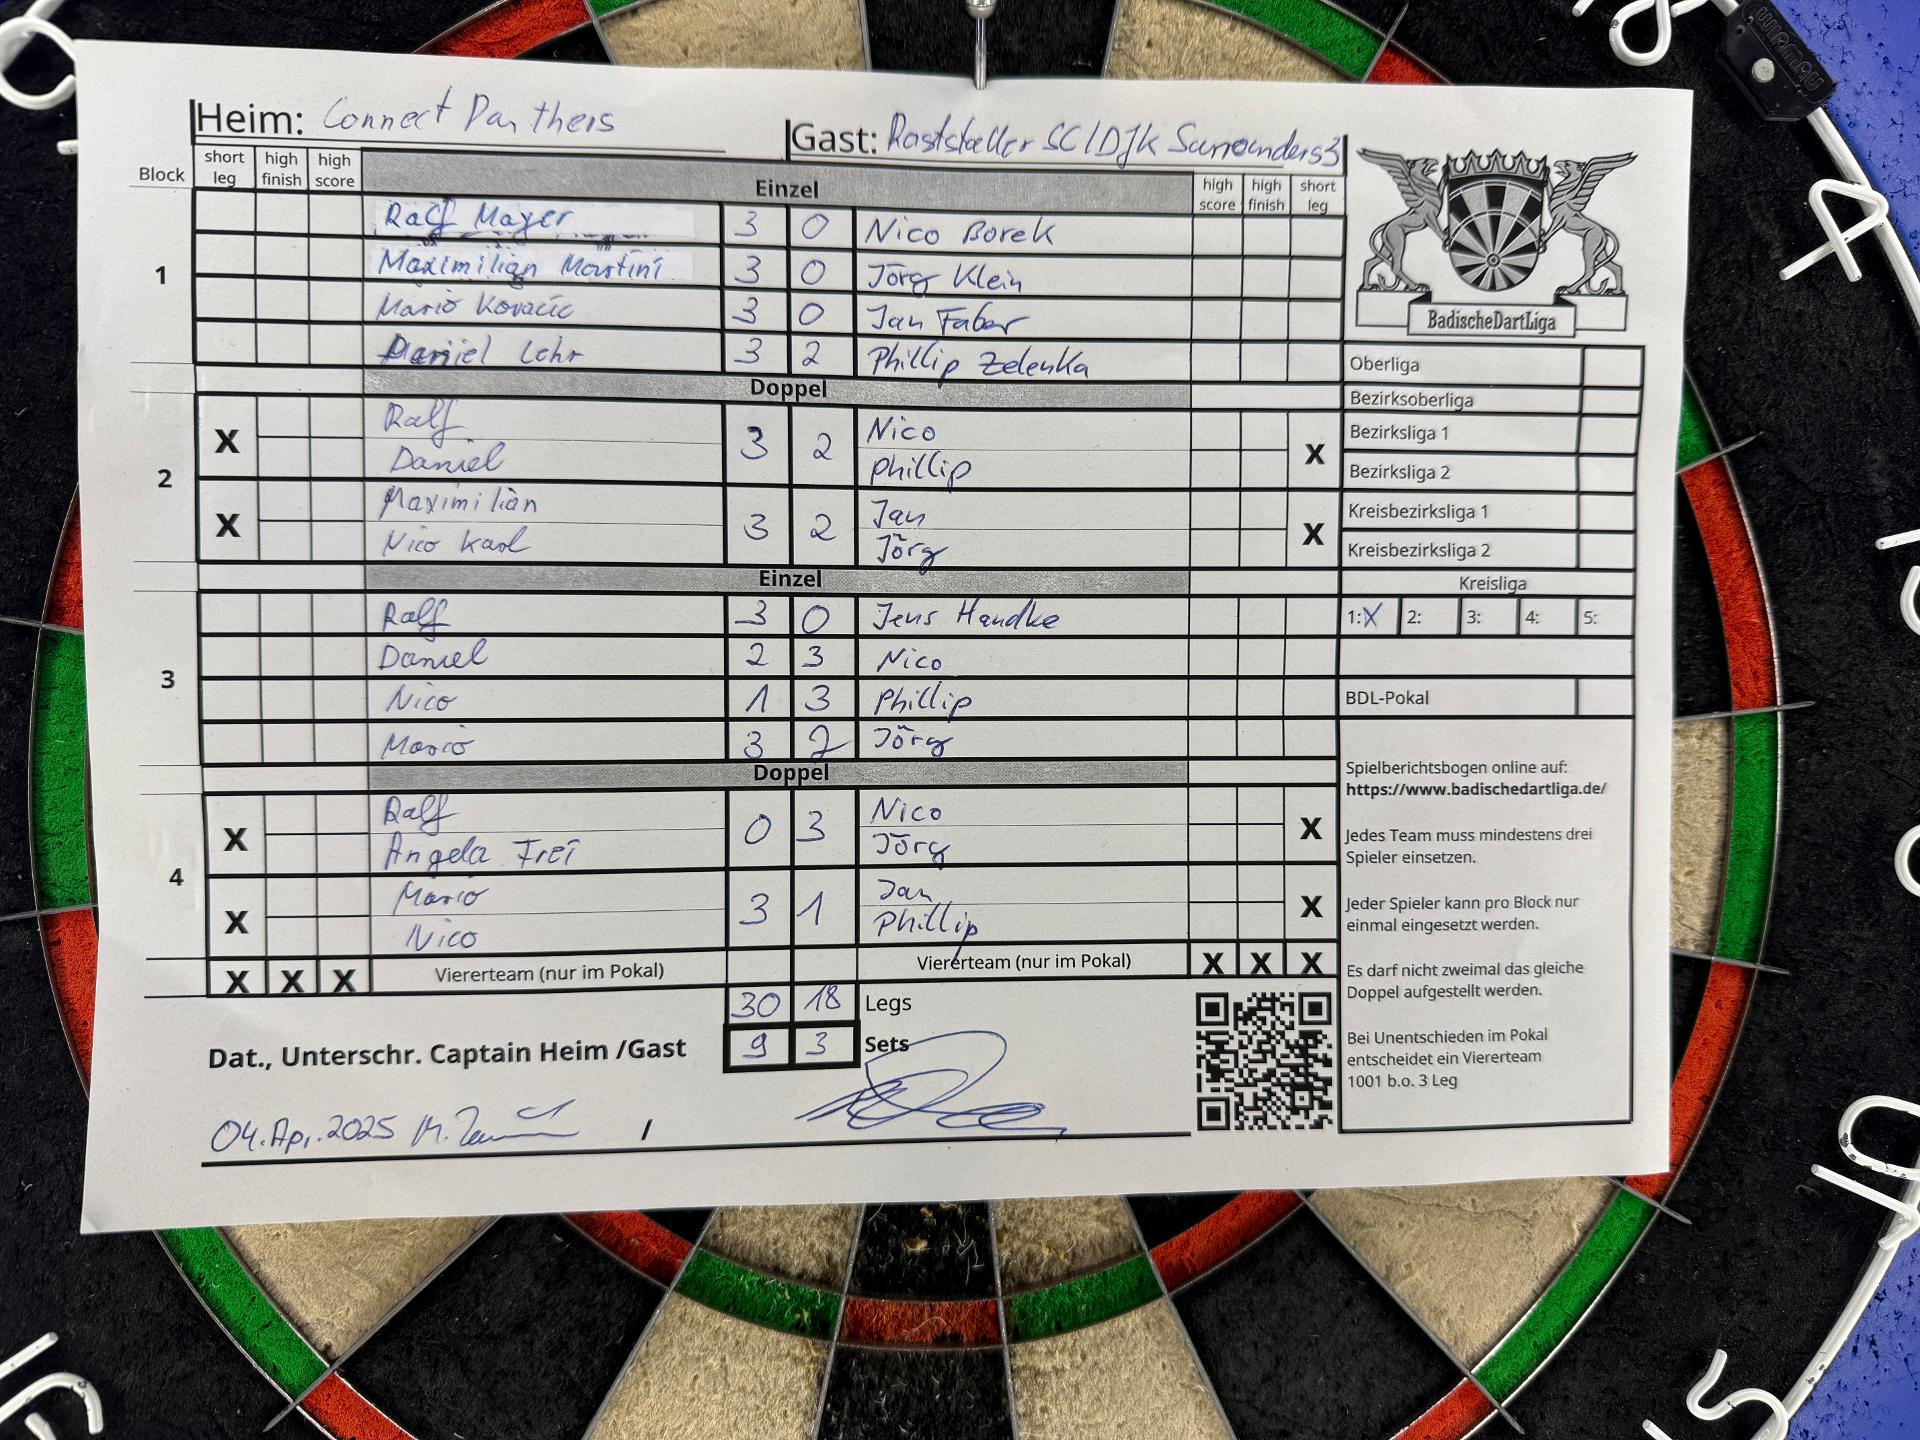 Heim: Connect Panthers
Gast: Raststatter SC/DJK Surrounders3
Block short leg high finish high score Einzel high score high finish short leg
1
Ralf Mayer 3 0 Nico Borek
Maximilian Martini 3 0 Jörg Klein
Mario Kovacic 3 0 Jan Faber
Daniel Lehr 3 2 Phillip Zelenka
Doppel
2
X Ralf 3 2 Nico X
Daniel Phillip
X Maximilian 3 2 Jan X
Nico Karl Jörg
Einzel
3
Ralf 3 0 Jens Handke
Daniel 2 3 Nico
Nico 1 3 Phillip
Mario 3 2 Jörg
Doppel
4
X Ralf 0 3 Nico X
Angela Frei Jörg
X Mario 3 1 Jan X
Nico Phillip
X X X Viererteam (nur im Pokal) Viererteam (nur im Pokal) X X X
30 18 Legs
9 3 Sets
Dat., Unterschr. Captain Heim /Gast
04.Apr.2025 /
BadischeDartLiga
Oberliga
Bezirksoberliga
Bezirksliga 1
Bezirksliga 2
Kreisbezirksliga 1
Kreisbezirksliga 2
Kreisliga
1: X 2: 3: 4: 5:
BDL-Pokal
Spielberichtsbogen online auf:
https://www.badischedartliga.de/
Jedes Team muss mindestens drei
Spieler einsetzen.
Jeder Spieler kann pro Block nur
einmal eingesetzt werden.
Es darf nicht zweimal das gleiche
Doppel aufgestellt werden.
Bei Unentschieden im Pokal
entscheidet ein Viererteam
1001 b.o. 3 Leg
WINMAU